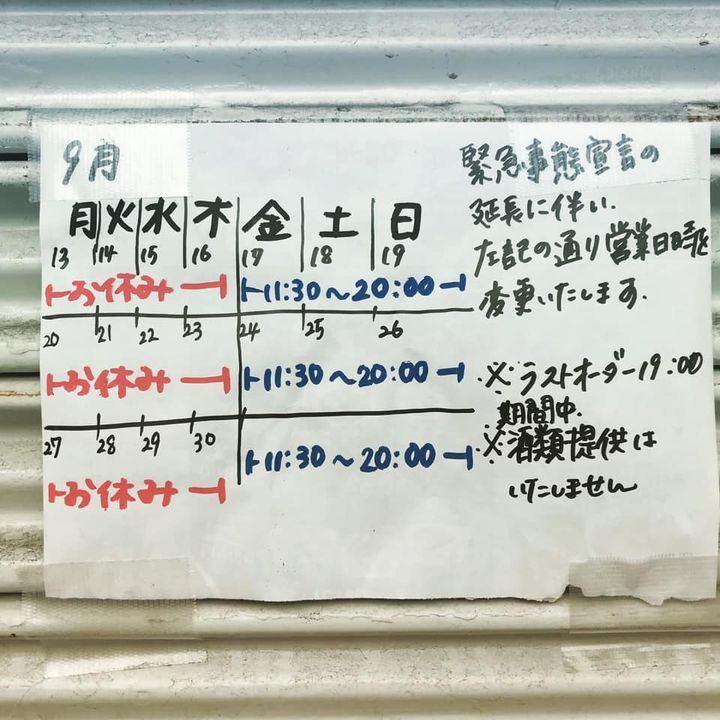 9月
月 火 水 木 金 土 日
13 14 15 16 17 18 19
お休み 11:30～20:00
20 21 22 23 24 25 26
お休み 11:30～20:00
27 28 29 30
お休み 11:30～20:00
緊急事態宣言の
延長に伴い、
左記の通り営業日時を
変更いたします。
※ラストオーダー19:00
期間中、
※酒類提供は
いたしません